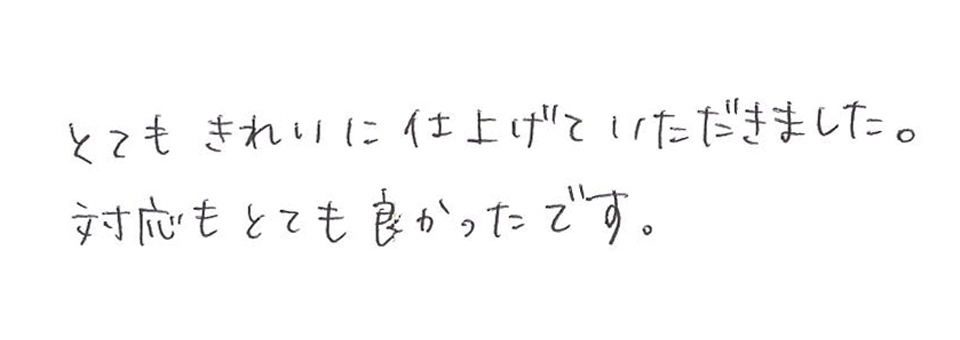 とても きれいに 仕上げていただきました。
対応もとても良かったです。